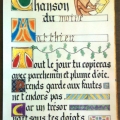 Chanson
du moine
Matthieu
Tout le jour tu copieras
avec parchemin et plume d'oie.
Prends garde aux fautes
ne t'endors pas
Car un trésor
naît sous tes doigts